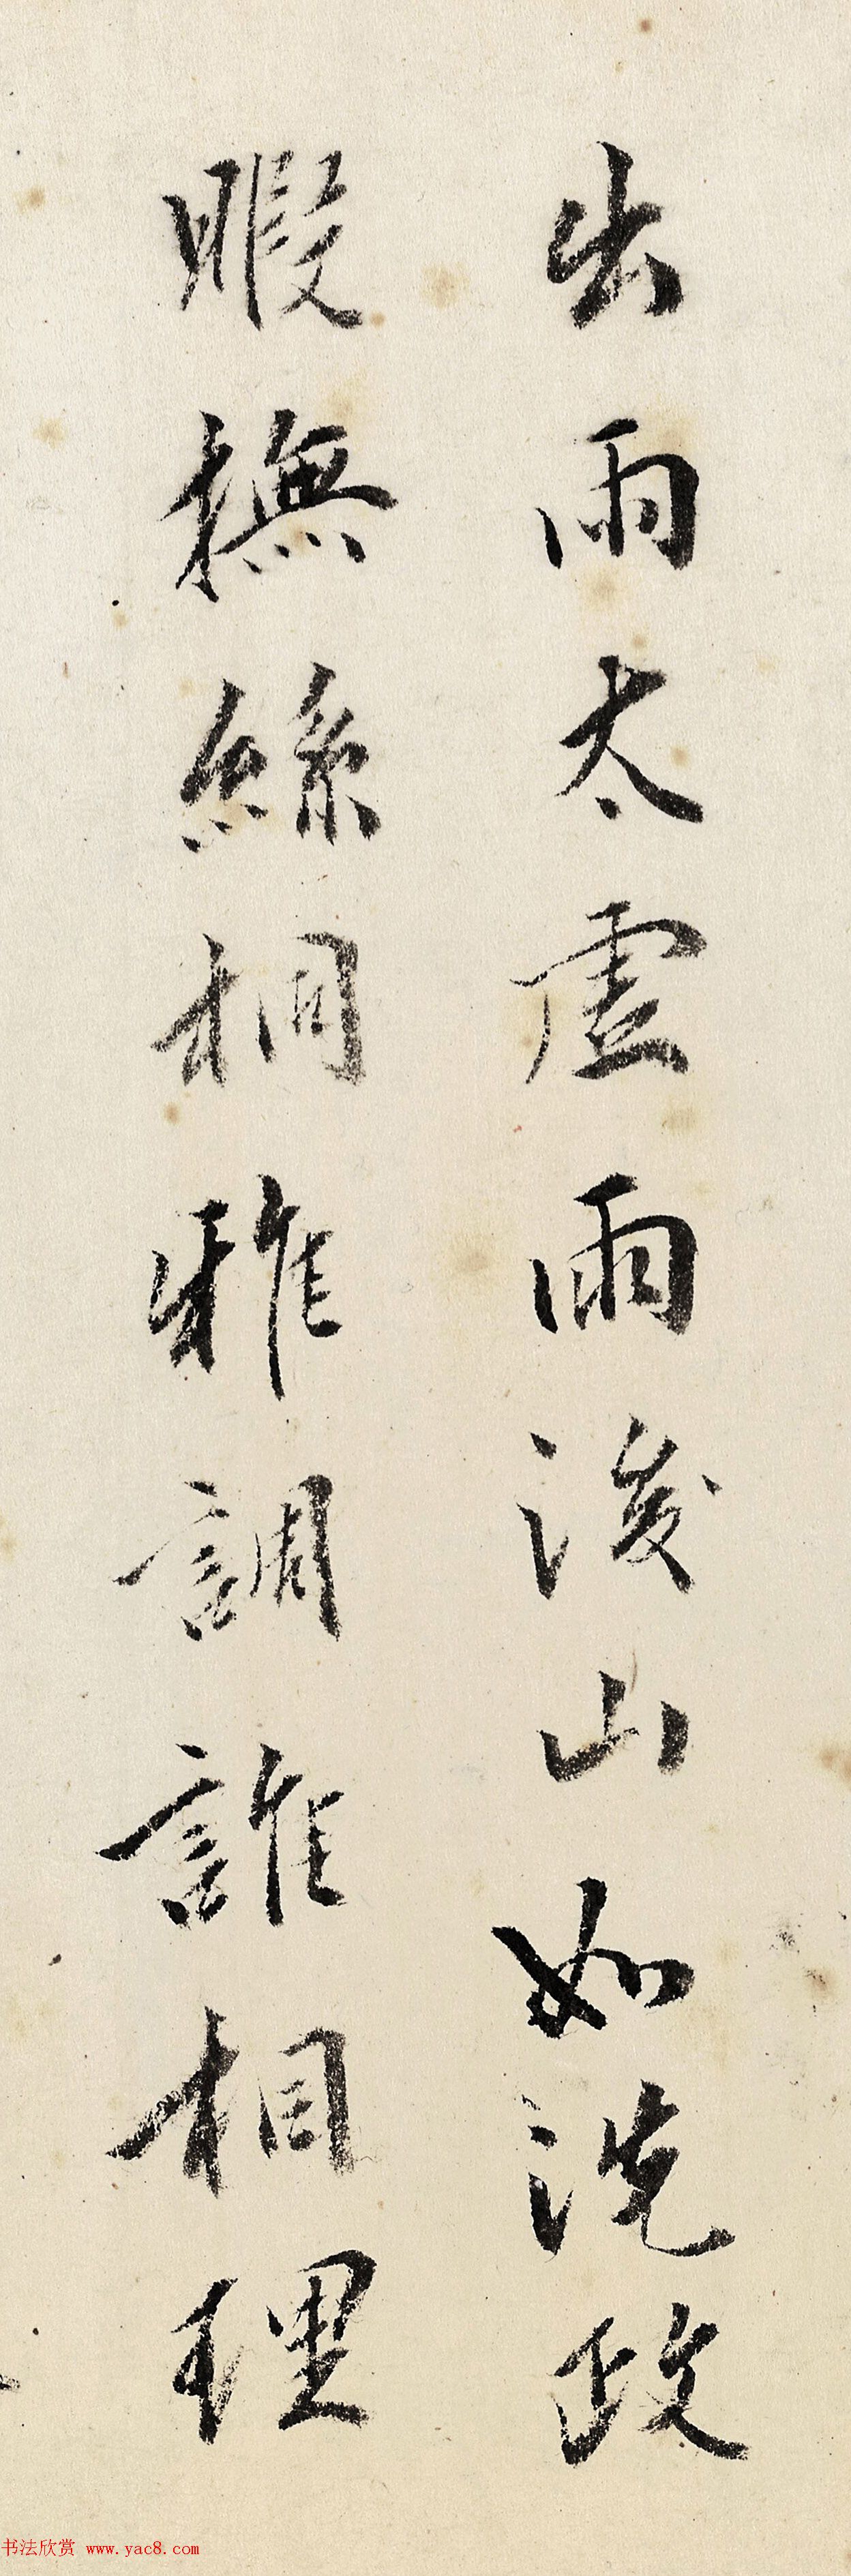 出雨太虚雨後山如洗政
暇撫絲桐雅調誰相理
书法欣赏 www.yac8.com